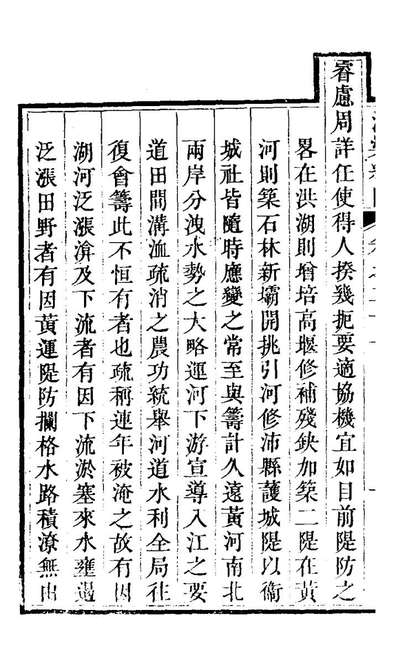 睿慮周詳任使得人揆幾扼要適協機宜如目前隄防之
畧在洪湖則增培高堰修補殘缺加築二隄在黃
河則築石林新壩開挑引河修沛縣護城隄以衞
城社皆隨時應變之常至與籌計久遠黃河南北
兩岸分洩水勢之大略運河下游宣導入江之要
道田間溝洫疏消之農功統舉河道水利全局往
復會籌此不恒有者也疏稱連年被淹之故有因
湖河泛漲渰及下流者有因下流淤塞來水壅遏
泛漲田野者有因黃運隄防攔格水路積潦無由